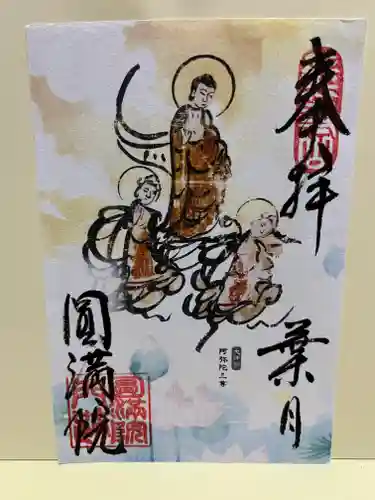 奉拝
葉月
阿弥陀三尊
圓満院
圓満院